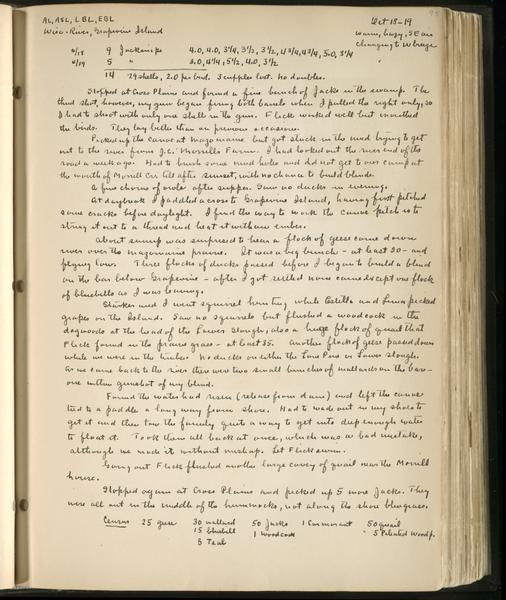 AL, ASL, LBL, EBL Oct 18-19
Wisc. River, Grapevine Island warm, hazy, SE air
changing to W breeze
10/18 9 Jacksnipe 4.0, 4.0, 3¼, 3½, 3½, 4¾, 4¾, 5.0, 3¼
10/19 5 " 3.0, 4¼, 5½, 4.0, 3½
14 29 shells, 2.0 per bird. 3 cripples lost. No doubles.
Stopped at Cross Plains and found a fine bunch of Jacks in the swamp. The
third shot, however, my gun began firing both barrels when I pulled the right only, so
I had to shoot with only one shell in the gun. Flick worked well but
the birds. They lay better than on previous occasions.
Picked up the canoe at Mazomanie but got stuck in the mud trying to get
out to the river from J.C. Morrill's Farm. I had looked out the river end of the
road a week ago. Had to brush some mud holes and did not get to our camp at
the mouth of Morrill Cr till after sunset, with no chance to build blinds.
A fine chorus of owls after supper. Saw no ducks in evening.
At daybreak I paddled across to Grapevine Island, having first pitched
some cracks before daylight. I find the way to work the canoe pitch is to
string it out to a thread and heat it with an ember.
About sunup was surprised to hear a flock of geese come down
river over the Mazomanie prairie. It was a big bunch - at least 20 - and
flying low. Three flocks of ducks passed before I began to build a blind
on the bar below Grapevine - after I got settled none came except one flock
of bluebills as I was leaving.
Starker and I went squirrel hunting while Estella and Luna picked
grapes on the Island. Saw no squirrels but flushed a woodcock in the
dogwoods at the head of the Lower Slough, also a huge flock of quail that
Flick found in the prairie grass - at least 35. Another flock of geese passed down
while we were in the timber. No ducks on either the Lone Pine or Lower Slough.
As we came back to the river there were two small bunches of mallards on the bars -
one within gunshot of my blind.
Found the water had risen (release from dam) and left the canoe
tied to a paddle a long way from shore. Had to wade out in my shoes to
get it and then tow the family quite a way to get into deep enough water
to float it. Took them all back at once, which was a bad mistake,
although we made it without mishap. Let Flick swim.
Going out Flick flushed another large covey of quail near the Morrill
house.
Stopped again at Cross Plains and picked up 5 more Jacks. They
were all out in the middle of the hummocks, not along the shore bluegrass.
Census 25 geese 30 mallard 50 Jacks 1 Cormorant 50 quail
15 bluebill 1 woodcock 5 Pileated Woodp.
5 Teal